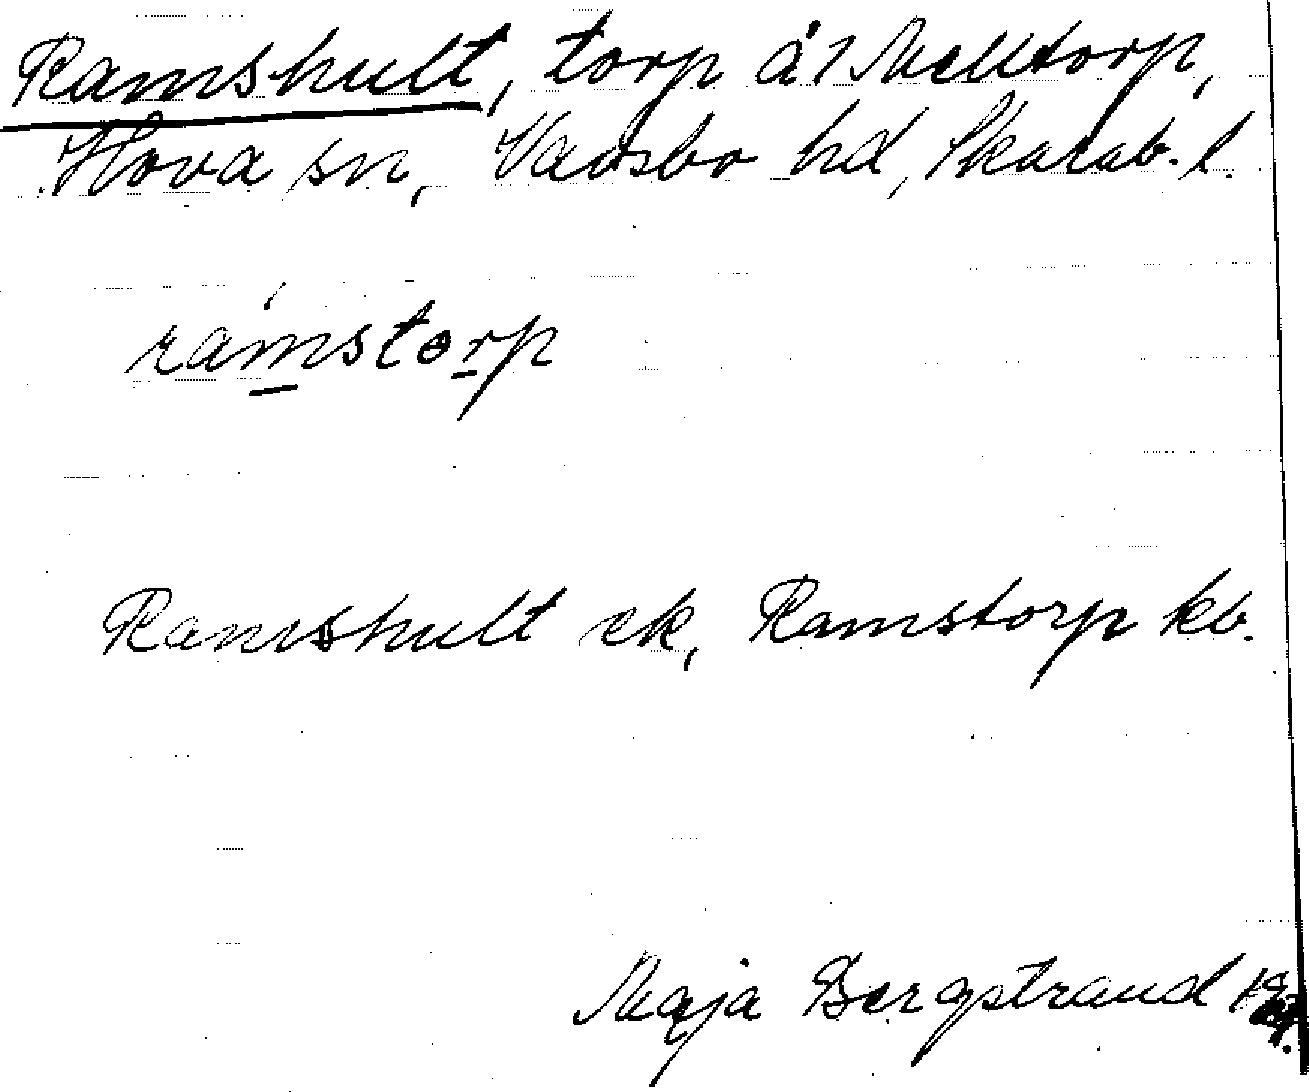 Ramshult, torp å 1 Melltorp,
Hova sn, Vadsbo hd, Skarab. l.
ramstorp
Ramshult ek, Ramstorp kb.
Maja Bergstrand